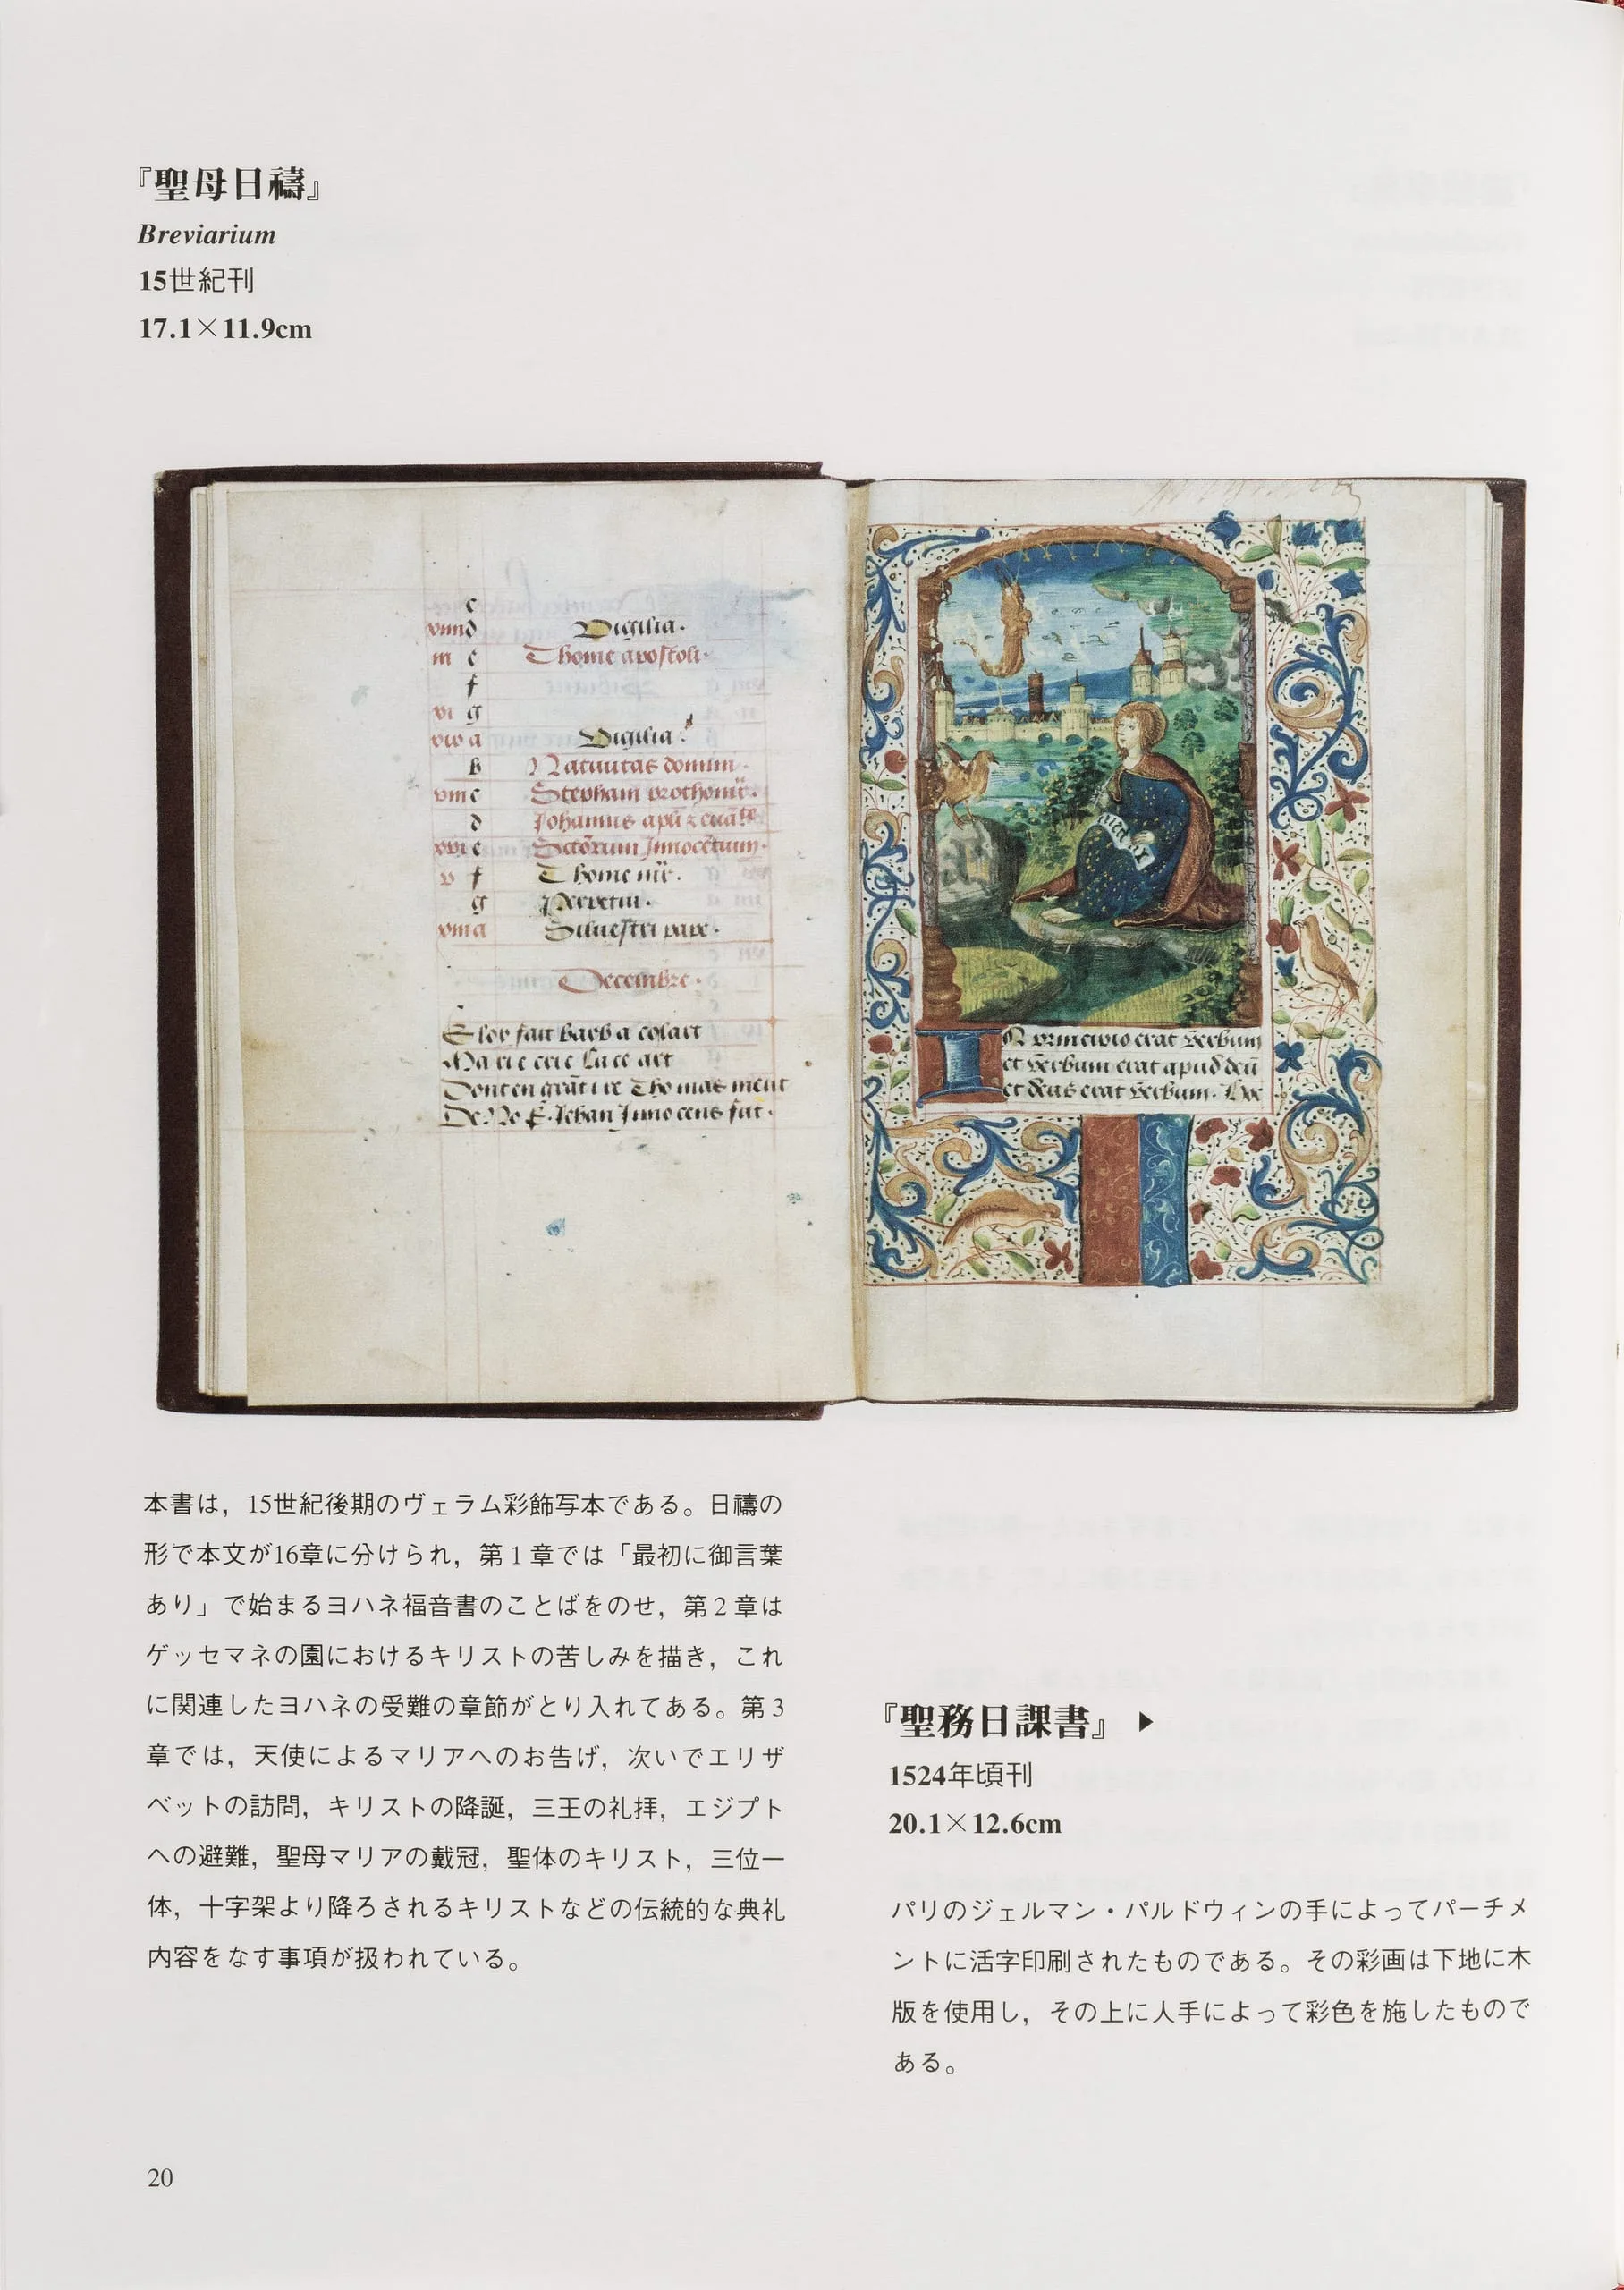 『聖母日禱』
Breviarium
15世紀刊
17.1×11.9cm
c
d
Vigilia.
m e Thome apostoli.
f
vi g
a Vigilia.
b Natiuitas domini.
c Stephani
d Johannis
e Innocētum.
v f Thome
g
a Siluestri pape.
Decembre.
Eloy fait barb a colart
Ma rie crie La ce art
Dont en grāt ire Tho mas meut
De No E. Jehan Inno cens fut.
IN principio erat verbum
et verbum erat apud deū
et deus erat verbum. Hoc
本書は，15世紀後期のヴェラム彩飾写本である。日禱の
形で本文が16章に分けられ，第1章では「最初に御言葉
あり」で始まるヨハネ福音書のことばをのせ，第2章は
ゲッセマネの園におけるキリストの苦しみを描き，これ
に関連したヨハネの受難の章節がとり入れてある。第3
章では，天使によるマリアへのお告げ，次いでエリザ
ベットの訪問，キリストの降誕，三王の礼拝，エジプト
への避難，聖母マリアの戴冠，聖体のキリスト，三位一
体，十字架より降ろされるキリストなどの伝統的な典礼
内容をなす事項が扱われている。
『聖務日課書』 ▶
1524年頃刊
20.1×12.6cm
パリのジェルマン・パルドウィンの手によってパーチメ
ントに活字印刷されたものである。その彩画は下地に木
版を使用し，その上に人手によって彩色を施したもので
ある。
20